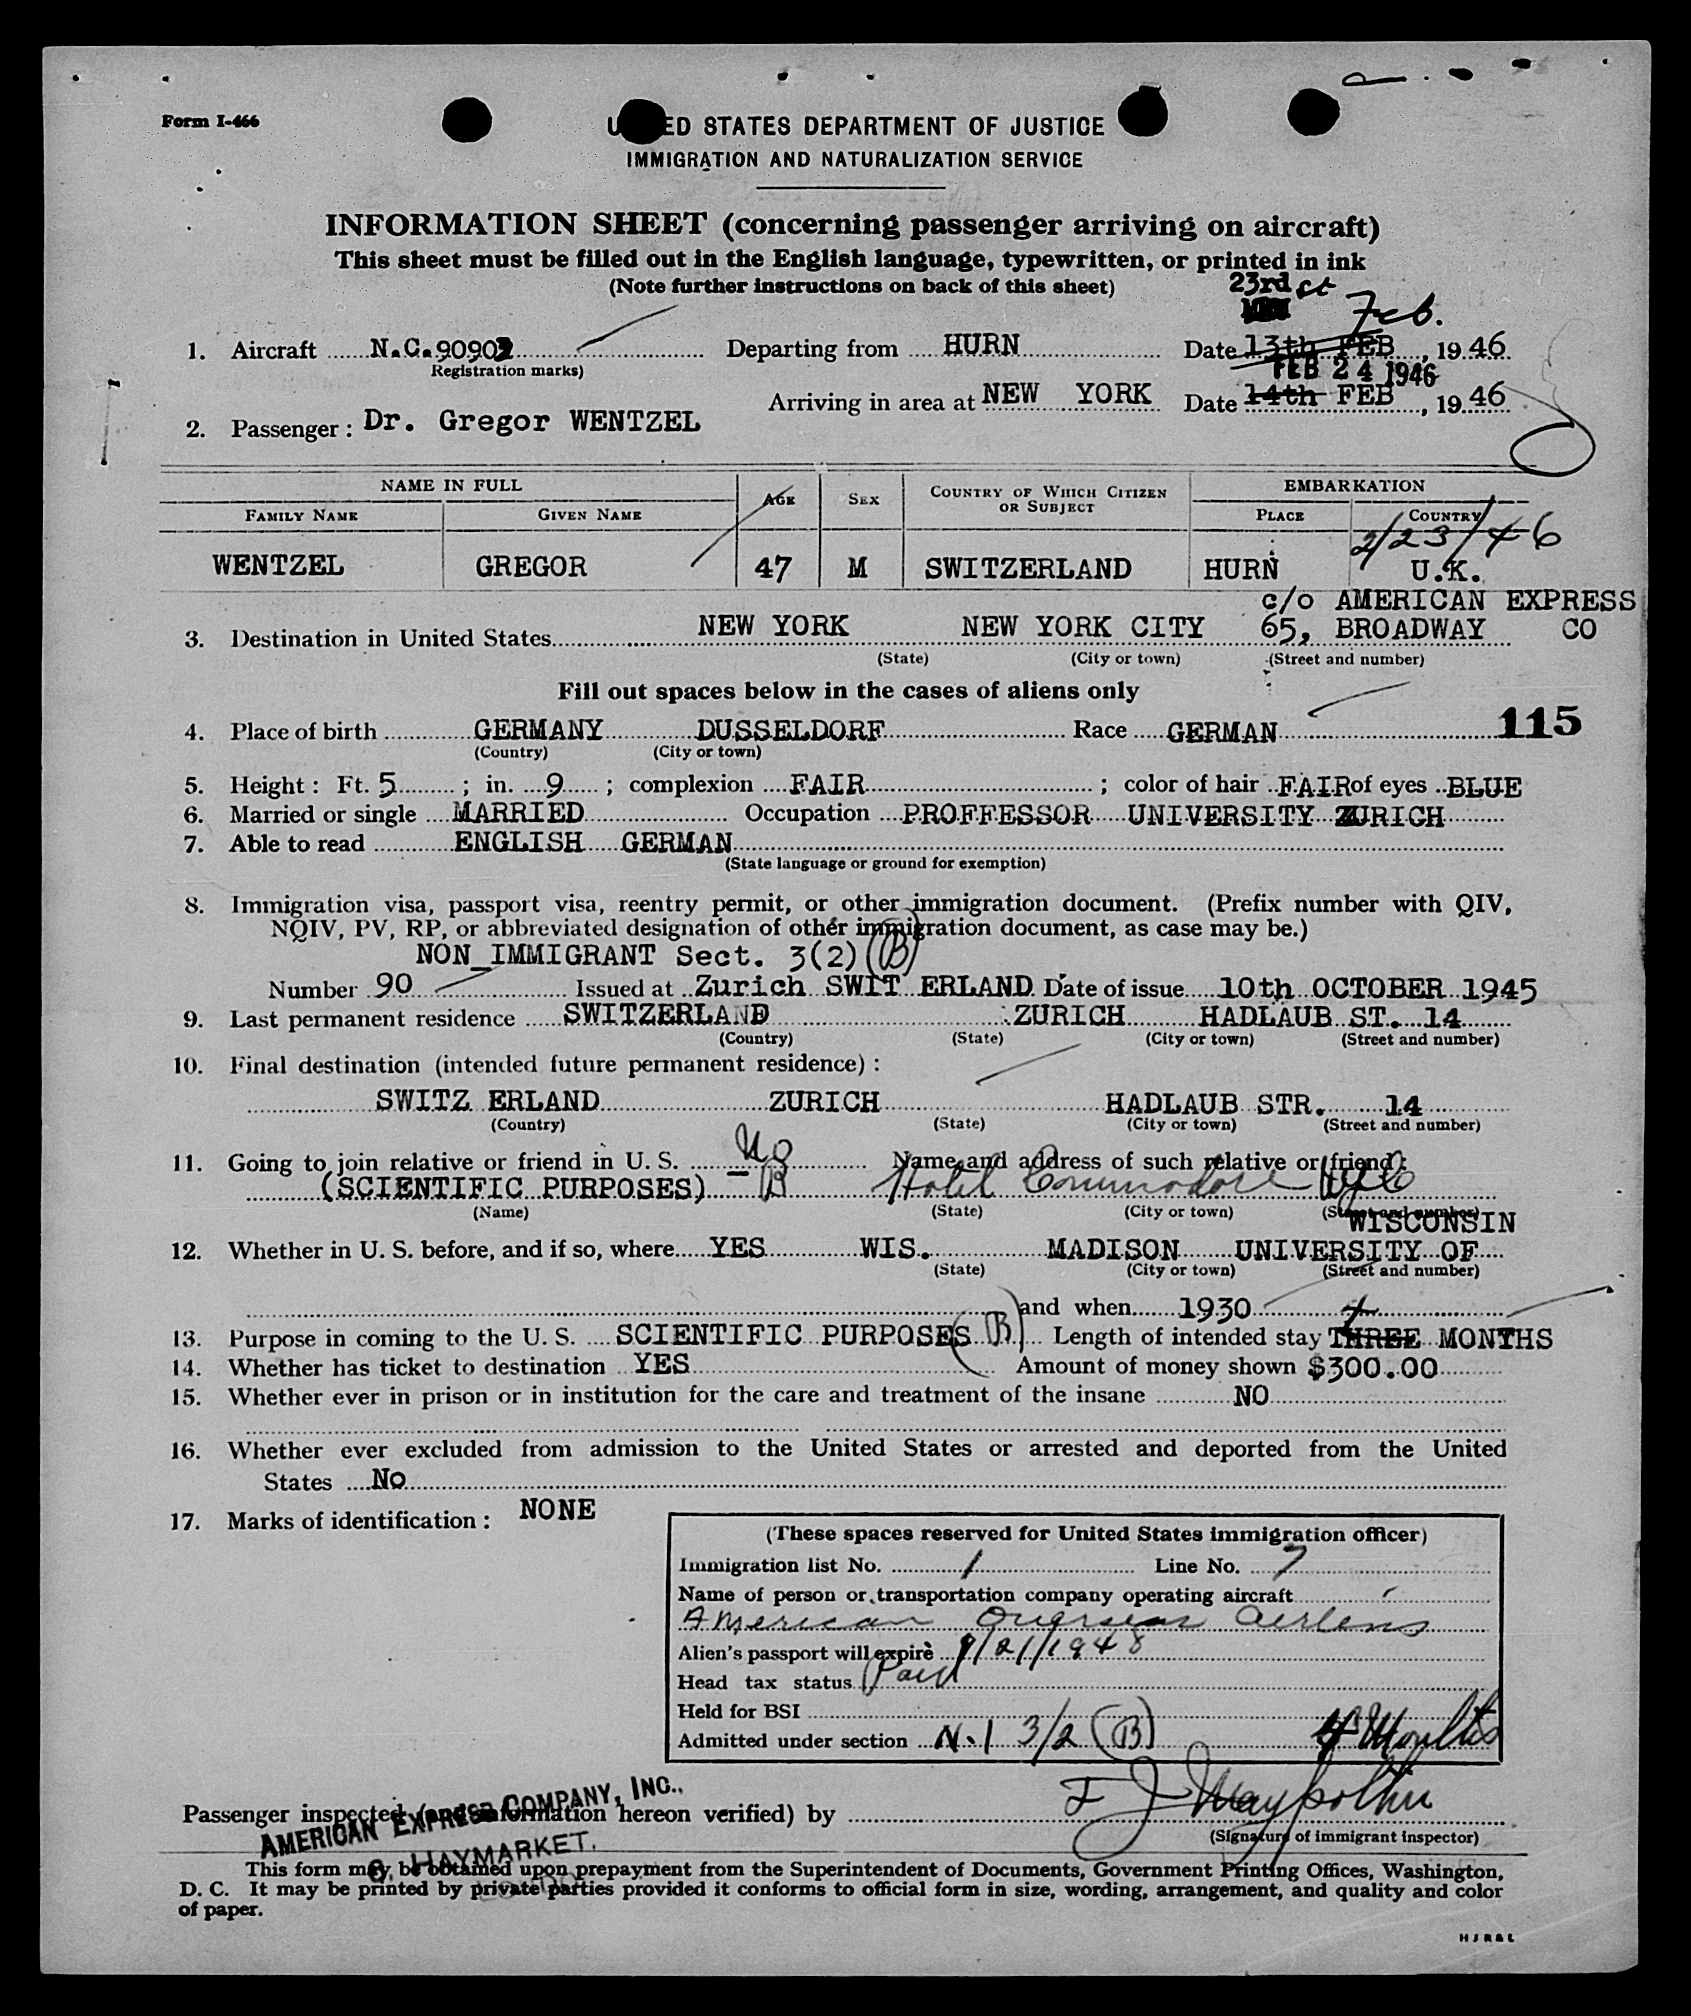 Form I-466
UNITED STATES DEPARTMENT OF JUSTICE
IMMIGRATION AND NATURALIZATION SERVICE
INFORMATION SHEET (concerning passenger arriving on aircraft)
This sheet must be filled out in the English language, typewritten, or printed in ink
(Note further instructions on back of this sheet)
23rd
Feb.
1. Aircraft N.C.90902 Departing from HURN Date 13th FEB, 1946
(Registration marks)
FEB 24 1946
Arriving in area at NEW YORK Date 14th FEB, 1946
2. Passenger: Dr. Gregor WENTZEL
NAME IN FULL AGE SEX COUNTRY OF WHICH CITIZEN OR SUBJECT EMBARKATION
FAMILY NAME GIVEN NAME PLACE COUNTRY
2/23/46
WENTZEL GREGOR 47 M SWITZERLAND HURN U.K.
c/o AMERICAN EXPRESS
3. Destination in United States NEW YORK NEW YORK CITY 65, BROADWAY CO
(State) (City or town) (Street and number)
Fill out spaces below in the cases of aliens only
4. Place of birth GERMANY DUSSELDORF Race GERMAN 115
(Country) (City or town)
5. Height: Ft. 5; in. 9; complexion FAIR; color of hair FAIR of eyes BLUE
6. Married or single MARRIED Occupation PROFFESSOR UNIVERSITY ZURICH
7. Able to read ENGLISH GERMAN
(State language or ground for exemption)
8. Immigration visa, passport visa, reentry permit, or other immigration document. (Prefix number with QIV,
NQIV, PV, RP, or abbreviated designation of other immigration document, as case may be.)
NON_IMMIGRANT Sect. 3(2) (B)
Number 90 Issued at Zurich SWIT ERLAND Date of issue 10th OCTOBER 1945
9. Last permanent residence SWITZERLAND ZURICH HADLAUB ST. 14
(Country) (State) (City or town) (Street and number)
10. Final destination (intended future permanent residence):
SWITZ ERLAND ZURICH HADLAUB STR. 14
(Country) (State) (City or town) (Street and number)
11. Going to join relative or friend in U. S. No Name and address of such relative or friend:
(SCIENTIFIC PURPOSES) B Hotel Commodore NYC
(Name) (State) (City or town) (Street and number)
WISCONSIN
12. Whether in U. S. before, and if so, where YES WIS. MADISON UNIVERSITY OF
(State) (City or town) (Street and number)
and when 1930
4
13. Purpose in coming to the U. S. SCIENTIFIC PURPOSES (B) Length of intended stay THREE MONTHS
14. Whether has ticket to destination YES Amount of money shown $300.00
15. Whether ever in prison or in institution for the care and treatment of the insane NO
16. Whether ever excluded from admission to the United States or arrested and deported from the United
States No
17. Marks of identification: NONE
(These spaces reserved for United States immigration officer)
Immigration list No. 1 Line No. 7
Name of person or transportation company operating aircraft
American Overseas Airlines
Alien's passport will expire 9/21/1948
Head tax status Paid
Held for BSI
Admitted under section N.I 3/2 (B) 4 Months
Passenger inspected (and information hereon verified) by
(Signature of immigrant inspector)
AMERICAN EXPRESS COMPANY, INC.,
6, HAYMARKET.
This form may be obtained upon prepayment from the Superintendent of Documents, Government Printing Offices, Washington,
D. C. It may be printed by private parties provided it conforms to official form in size, wording, arrangement, and quality and color
of paper.